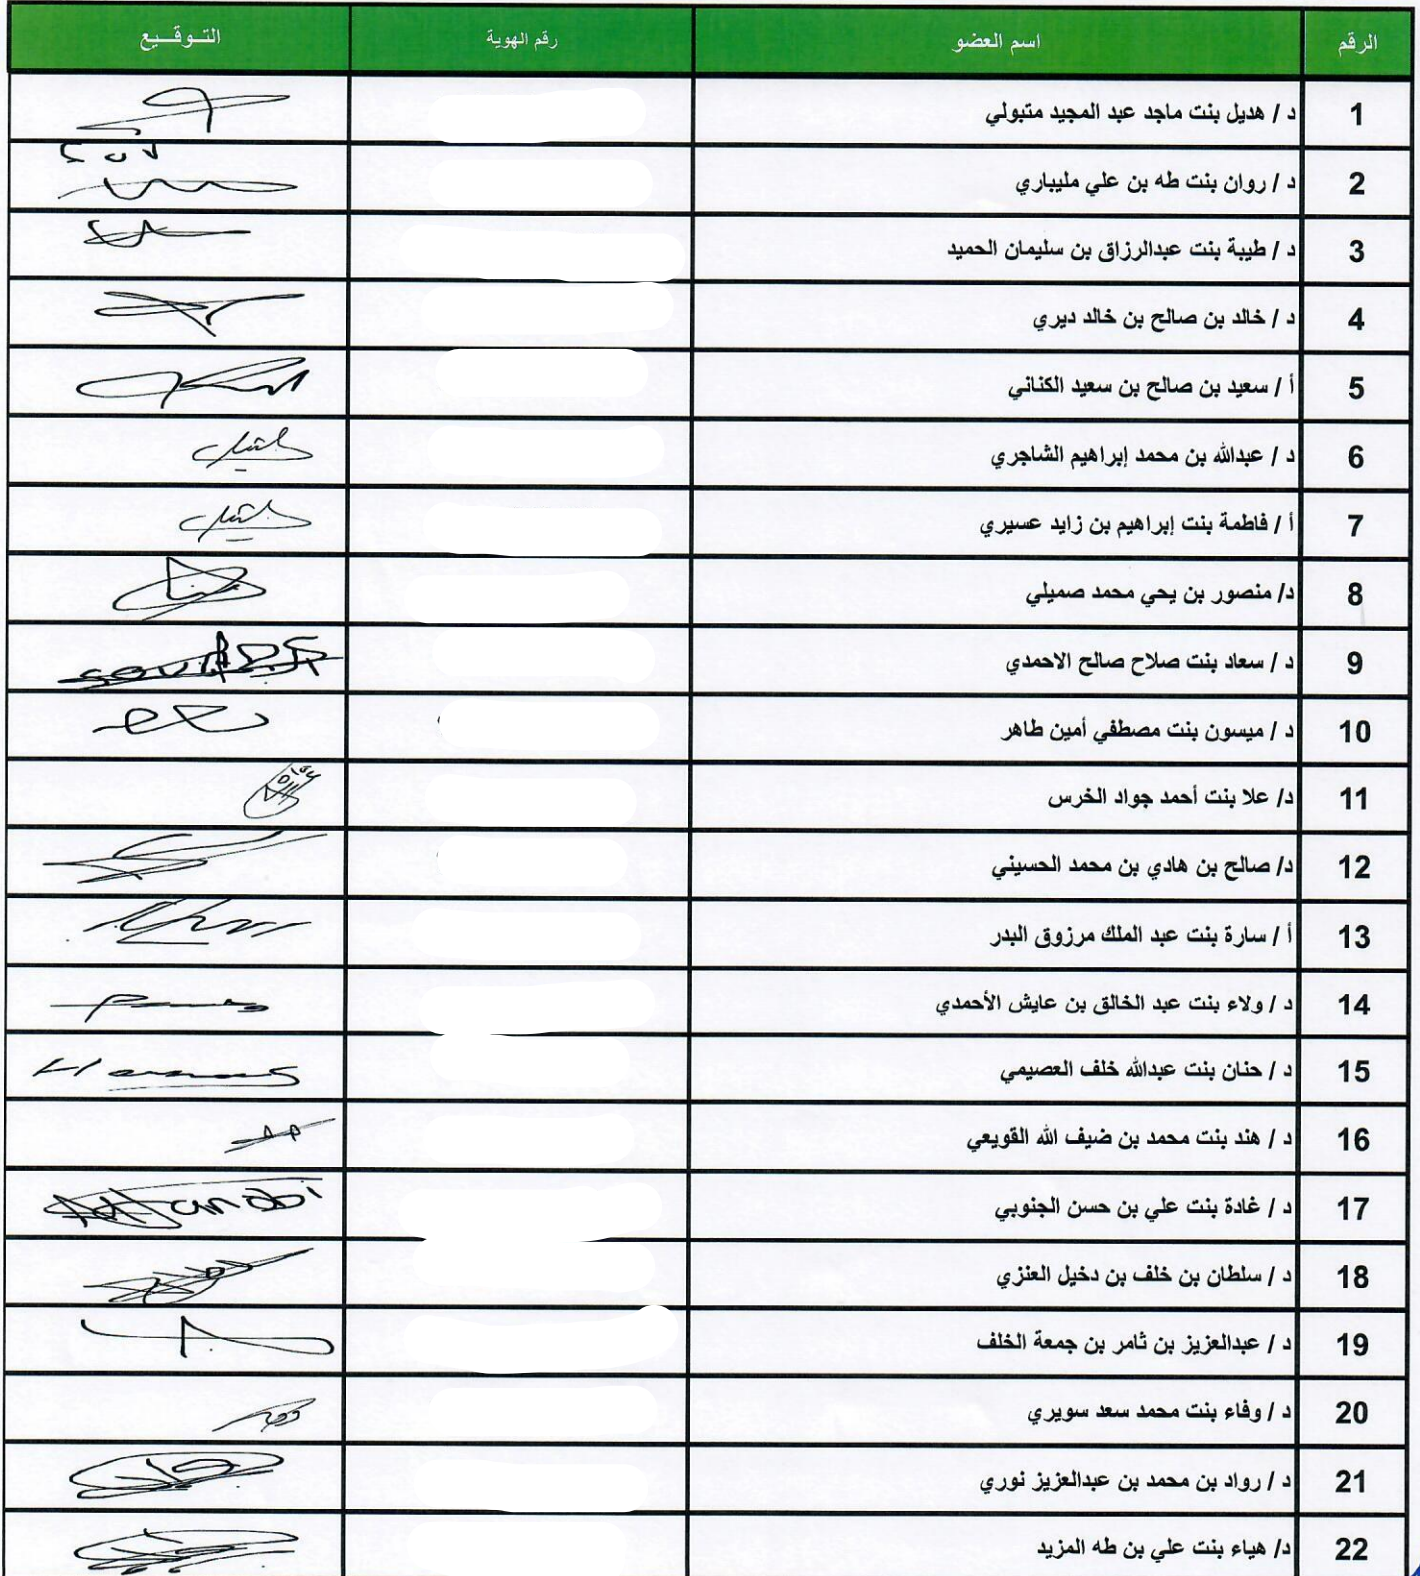 الرقم اسم العضو رقم الهوية التـوقـيـع
1 د / هديل بنت ماجد عبد المجيد متبولي
2 د / روان بنت طه بن علي مليباري
3 د / طيبة بنت عبدالرزاق بن سليمان الحميد
4 د / خالد بن صالح بن خالد ديري
5 أ / سعيد بن صالح بن سعيد الكناني
6 د / عبدالله بن محمد إبراهيم الشاجري
7 أ / فاطمة بنت إبراهيم بن زايد عسيري
8 د/ منصور بن يحي محمد صميلي
9 د / سعاد بنت صلاح صالح الاحمدي
10 د / ميسون بنت مصطفي أمين طاهر
11 د/ علا بنت أحمد جواد الخرس
12 د/ صالح بن هادي بن محمد الحسيني
13 أ / سارة بنت عبد الملك مرزوق البدر
14 د / ولاء بنت عبد الخالق بن عايش الأحمدي
15 د / حنان بنت عبدالله خلف العصيمي
16 د / هند بنت محمد بن ضيف الله القويعي
17 د / غادة بنت علي بن حسن الجنوبي
18 د / سلطان بن خلف بن دخيل العنزي
19 د / عبدالعزيز بن ثامر بن جمعة الخلف
20 د / وفاء بنت محمد سعد سويري
21 د / رواد بن محمد بن عبدالعزيز نوري
22 د/ هياء بنت علي بن طه المزيد